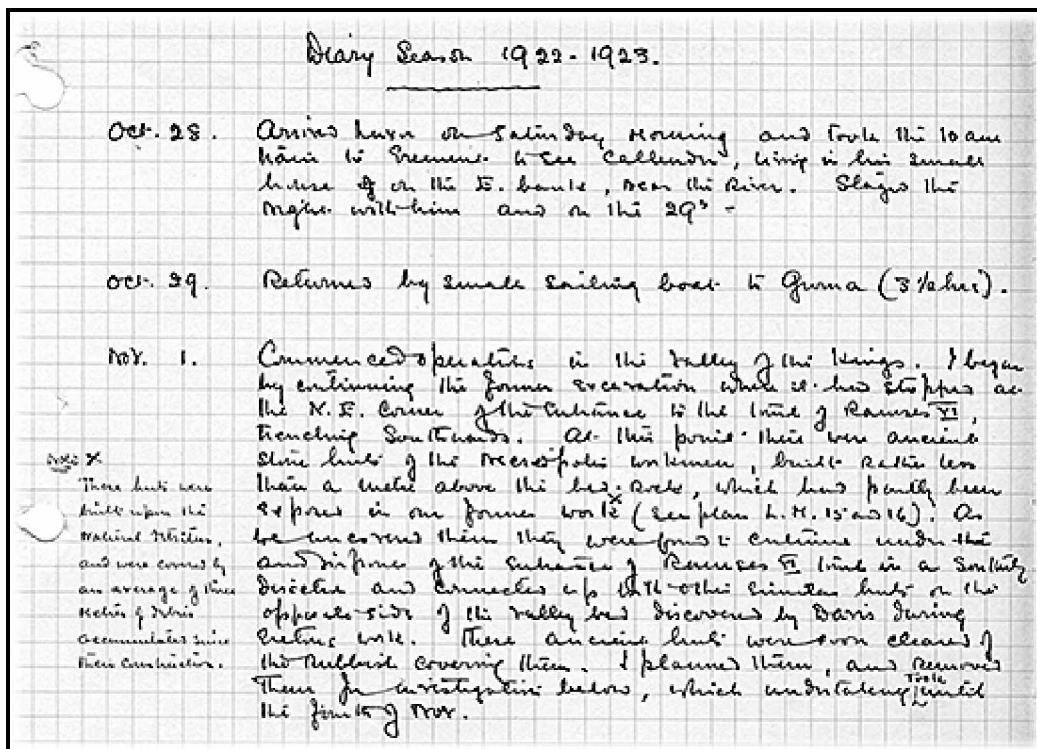 Diary Season 1922-1923.
Oct. 28. Arrived Luxor on Saturday morning and took the 10 am
train to Erment to see Callender, living in his small
house on the E. bank, near the River. Stayed the
night with him and on the 29th -
Oct. 29. Returned by small sailing boat to Gurna (3½ hrs).
Nov. 1. Commenced operations in the Valley of the Kings. I began
by continuing the former excavation where it had stopped at
the N.E. corner of the entrance to the tomb of Ramses VI,
trenching Southwards. At this point there were ancient
stone huts of the Necropolis workmen, built rather less
than a metre above the bed-rock, which had partly been
exposed in our former work x (see plan L.M. 15 and 16). As
we uncovered them they were found to continue under the
and in front of the entrance of Ramses VI tomb in a Southerly
direction and connected up with other similar huts on the
opposite side of the Valley bed discovered by Davis during
work. These ancient huts were soon cleared of
the rubbish covering them. I planned them, and removed
them for investigation below, which undertaking took until
the fourth of Nov.
Note X
These huts were
built upon the
natural detritus,
and were covered by
an average of three
metres of debris
accumulated since
their construction.